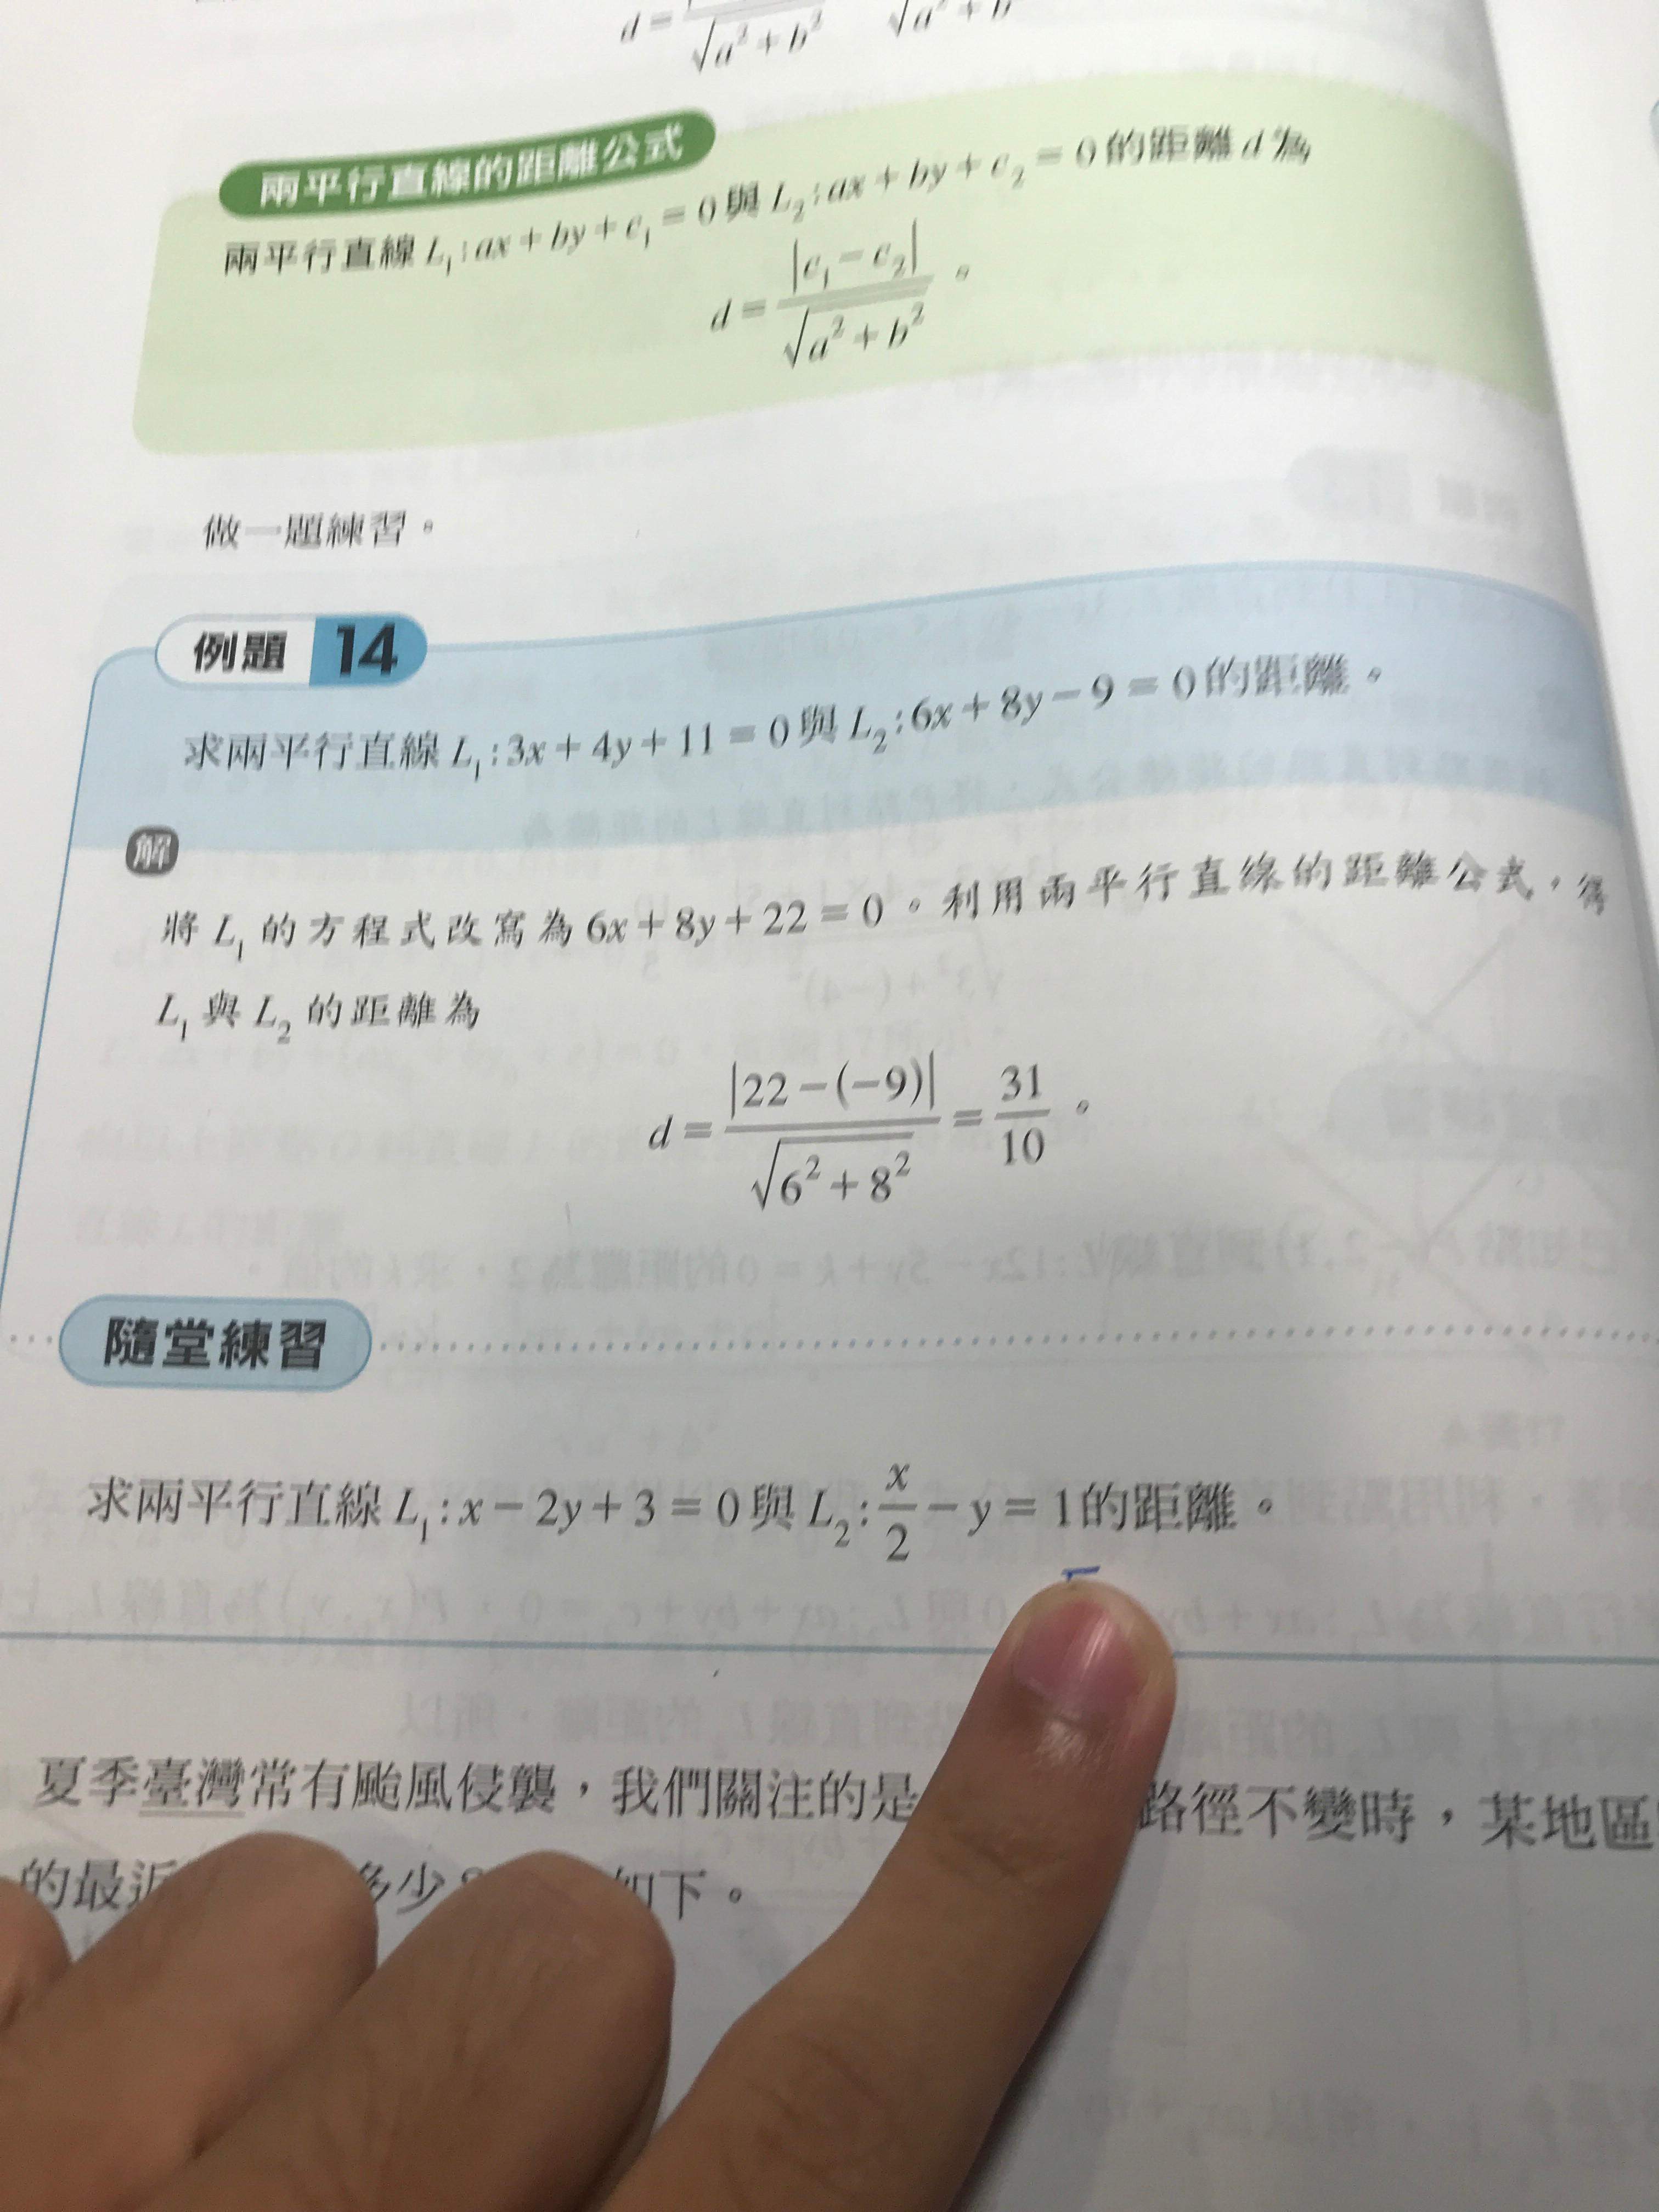 d = √a² + b² √a² + b
兩平行直線的距離公式
兩平行直線 L₁:ax + by + c₁ = 0 與 L₂:ax + by + c₂ = 0 的距離 d 為
d = |c₁ − c₂| / √a² + b² 。
做一題練習。
例題 14
求兩平行直線 L₁:3x + 4y + 11 = 0 與 L₂:6x + 8y − 9 = 0 的距離。
解
將 L₁ 的方程式改寫為 6x + 8y + 22 = 0。利用兩平行直線的距離公式,得
L₁ 與 L₂ 的距離為
d = |22 − (−9)| / √6² + 8² = 31/10 。
隨堂練習
求兩平行直線 L₁:x − 2y + 3 = 0 與 L₂: x/2 − y = 1 的距離。
夏季臺灣常有颱風侵襲,我們關注的是 路徑不變時,某地區
的最近 多少 如下。